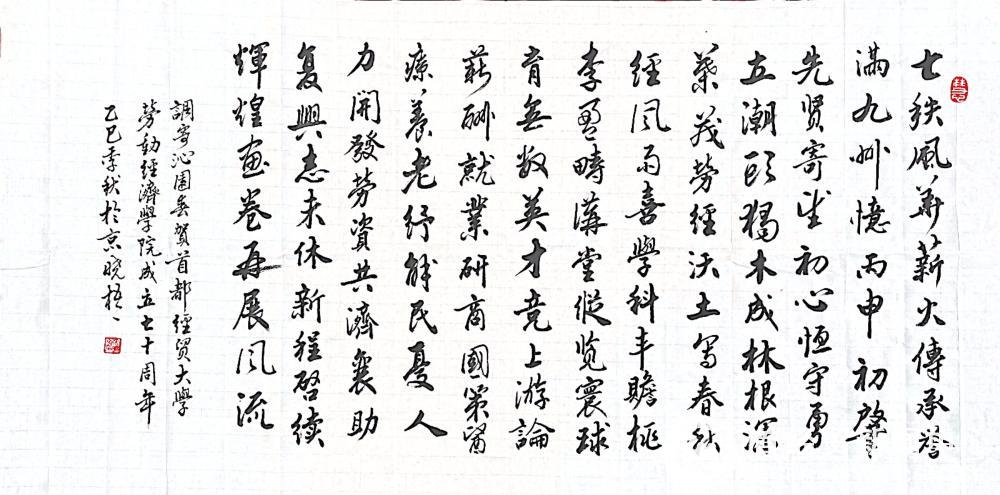 七秩風華薪火傳承誉
滿九州憶丙申初啓
先贤寄望初心恒守勇
立潮头獨木成林根深
葉茂劳經沃土写春秋
經風雨喜學科丰贍桃
李盈疇講堂縱览寰球
育無数英才竞上游論
薪酬就業研商國策医
療養老紓解民憂人
力開發劳資共濟襄助
复興志未休新程启续
輝煌画卷再展风流
調寄沁園春賀首都經贸大學
勞動經濟學院成立七十周年
乙巳季秋於京晓梧